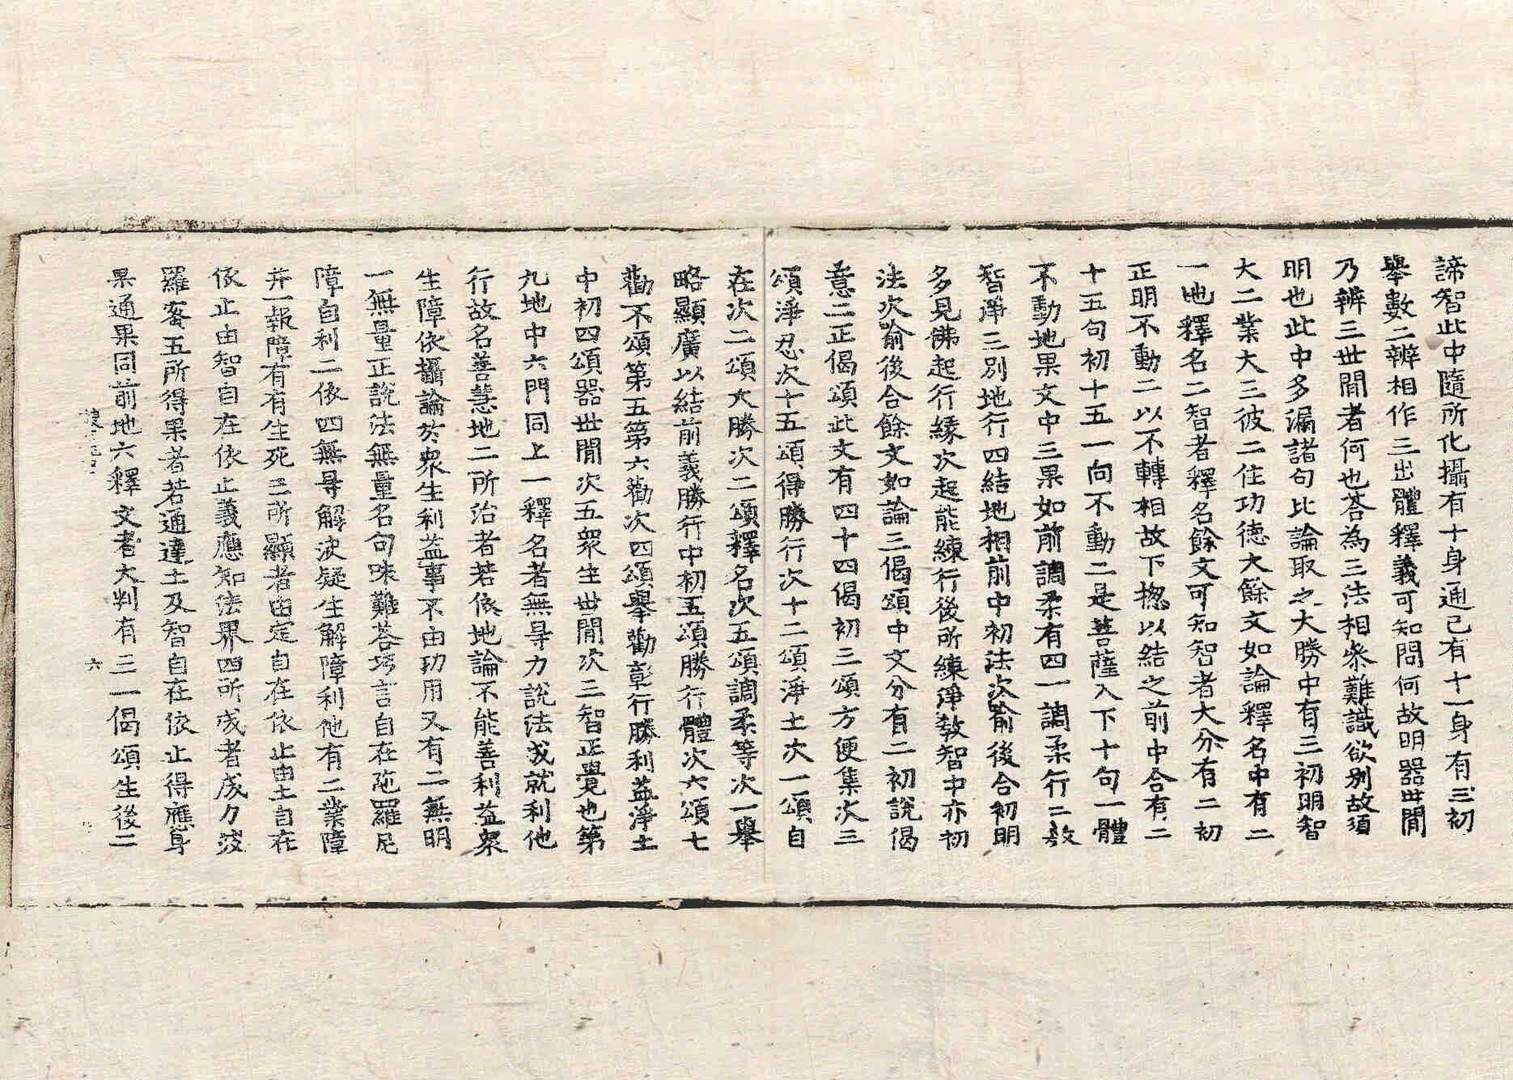 諦智此中隨所化攝有十身通已有十一身有三初
舉數二辨相作三出體釋義可知問何故明器世間
乃辨三世間者何也荅為三法相參難識欲別故須
明也此中多漏諸句比論取之大勝中有三初明智
大二業大三彼二住功德大餘文如論釋名中有二
一地釋名二智者釋名餘文可知智者大分有二初
正明不動二以不轉相故下揔以結之前中合有二
十五句初十五一向不動二是菩薩入下十句一體
不動地果文中三果如前調柔有四一調柔行二教
智淨三別地行四結地相前中初法次喻後合初明
多見佛起行緣次起能練行後所練淨教智中亦初
法次喻後合餘文如論三偈頌中文分有二初說偈
意二正偈頌此文有四十四偈初三頌方便集次三
頌淨忍次十五頌得勝行次十二頌淨土次一頌自
在次二頌大勝次二頌釋名次五頌調柔等次一舉
略顯廣以結前義勝行中初五頌勝行體次六頌七
勸不頌第五第六勸次四頌舉勸彰行勝利益淨土
中初四頌器世間次五眾生世間次三智正覺也第
九地中六門同上一釋名者無㝵力說法成就利他
行故名善慧地二所治者若依地論不能善利益眾
生障依攝論於眾生利益事不由功用又有二無明
一無量正說法無量名句味難荅巧言自在陁羅尼
障自利二依四無㝵解決疑生解障利他有二業障
并一報障有有生死三所顯者由定自在依止由土自在
依止由智自在依止義應知法界四所成者成力波
羅蜜五所得果者若通達土及智自在依止得應身
果通果同前地六釋文者大判有三一偈頌生後二
六